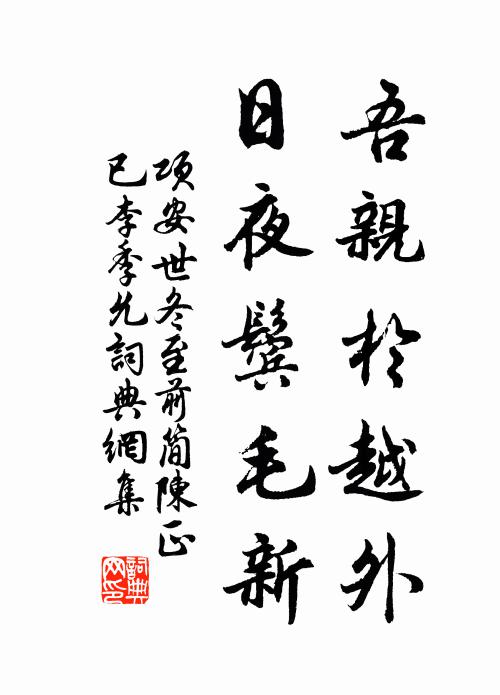 吾親於越外
日夜鬢毛新
項安世冬至前簡陳正
已李季允詞典網集
詞典
网印